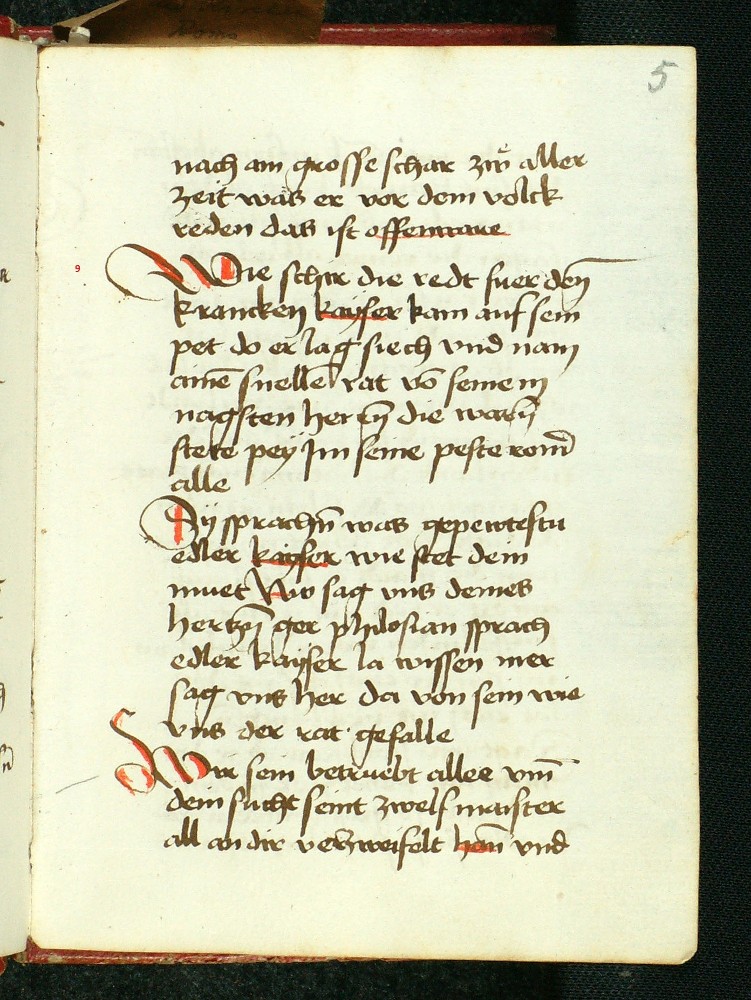 5
nach am grosse schar zw̆ aller
zeit was er vor dem volck
reden das ist offenware
9
Wie schir die redt fuer den
krancken kayser kam auf sein
pet do er lag siech vnd nam
ainē snellē rat vō seinem
nagsten herrn̄ die warn̄
stete pey Im seine peste rom̄
alle
Dy sprachn̄ was gepewtestu
edler kayser wie stet dein
muet Nw sag vns deines
hertzn̄ ger philosian sprach
edler kayser la wissen mer
sag vns her da von sein wie
vns der rat gefalle
Wir sein betruebt alle vm̄
dein sucht seint zwelf maister
all an dir verzweifelt hem̄ vnd